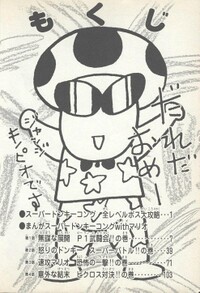 もくじ
だれだ
おめー
ジャッジ
キノピオです
●スーパードンキーコング/全レベルボス大攻略…1
●まんがスーパードンキーコングwithマリオ
無謀な展開 P1武闘会!!の巻…7
怒りのドンキー スーパーバトル!!の巻…39
速攻マリオ 恐怖の一撃!!の巻…71
意外な結末 クロス対決!!の巻…103